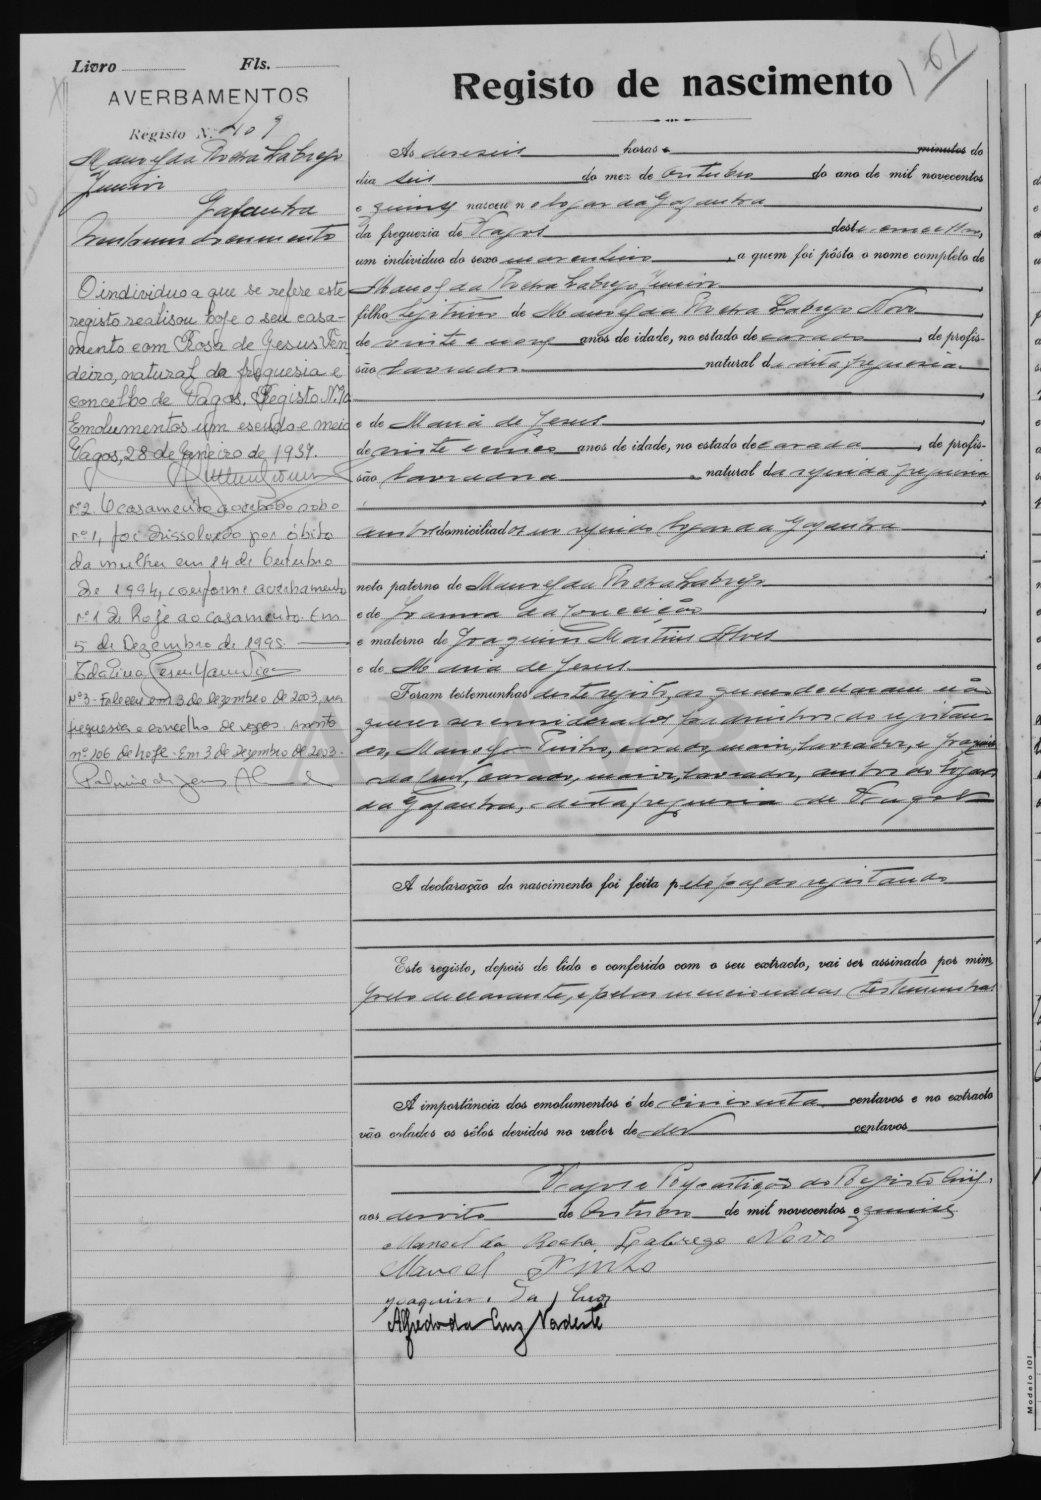 Livro Fls.
AVERBAMENTOS
Registo N.º 409
Manoel da Rocha Labrego
Junior
Gafanha
Nenhum documento
O individuo a que se refere este
registo realisou hoje o seu casa-
mento com Rosa de Jesus Ven
deiro, natural da freguesia e
concelho de Vagos. Registo N.º
Emolumentos um escudo e meio
Vagos, 28 de Janeiro de 1937.
nº 2 O casamento averbado sob o
nº 1, foi dissolvido por óbito
da mulher em 14 de Outubro
de 1994, conforme averbamento
nº 1 de hoje ao casamento. Em
5 de Dezembro de 1995.
Nº 3 - Faleceu em 3 de Dezembro de 2003, na
freguesia e concelho de Vagos. Assento
nº 206 de hoje - Em 3 de Dezembro de 2003 -
Registo de nascimento
161
Ás deseseis horas e minutos do
dia seis do mez de Outubro do ano de mil novecentos
e quinze nasceu no logar da Gafanha
da freguezia de Vagos deste concelho,
um individuo do sexo masculino, a quem foi pôsto o nome completo de
Manoel da Rocha Labrego Junior
filho legitimo de Manoel da Rocha Labrego Novo
de vinte e nove anos de idade, no estado de casado, de profis-
são lavrador natural da dita freguesia
e de Maria de Jesus
de vinte e cinco anos de idade, no estado de casada, de profis-
são lavradora natural da referida freguesia
ambos domiciliados no referido logar da Gafanha
neto paterno de Manoel da Rocha Labrego
e de Joanna da Conceição
e materno de Joaquim Martins Alves
e de Maria de Jesus
Foram testemunhas deste registo, as quaes declararam não
querer ser considerados padrinhos do registan-
do, Manoel Pinho, casado, maior, lavrador, e Joaquim
da Cruz, casado, maior, lavrador, ambos do logar
da Gafanha, desta freguesia de Vagos
A declaração do nascimento foi feita pelo pae do registando
Este registo, depois de lido e conferido com o seu extracto, vai ser assinado por mim,
pelo declarante, e pelas mencionadas testemunhas
A importância dos emolumentos é de cincoenta centavos e no extracto
vão colados os sêlos devidos no valor de dez centavos
Vagos e Repartição do Registo Civil,
aos dezoito de Outubro de mil novecentos e quinze
Manoel da Rocha Labrego Novo
Manoel Pinho
Joaquim da Cruz
Alfredo da Cruz Nordeste
ADAVR
Modelo 101